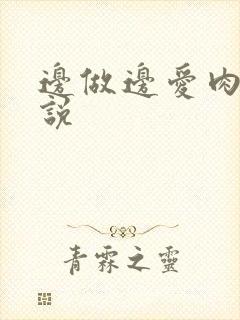 邊做邊愛肉
說
青霖之靈